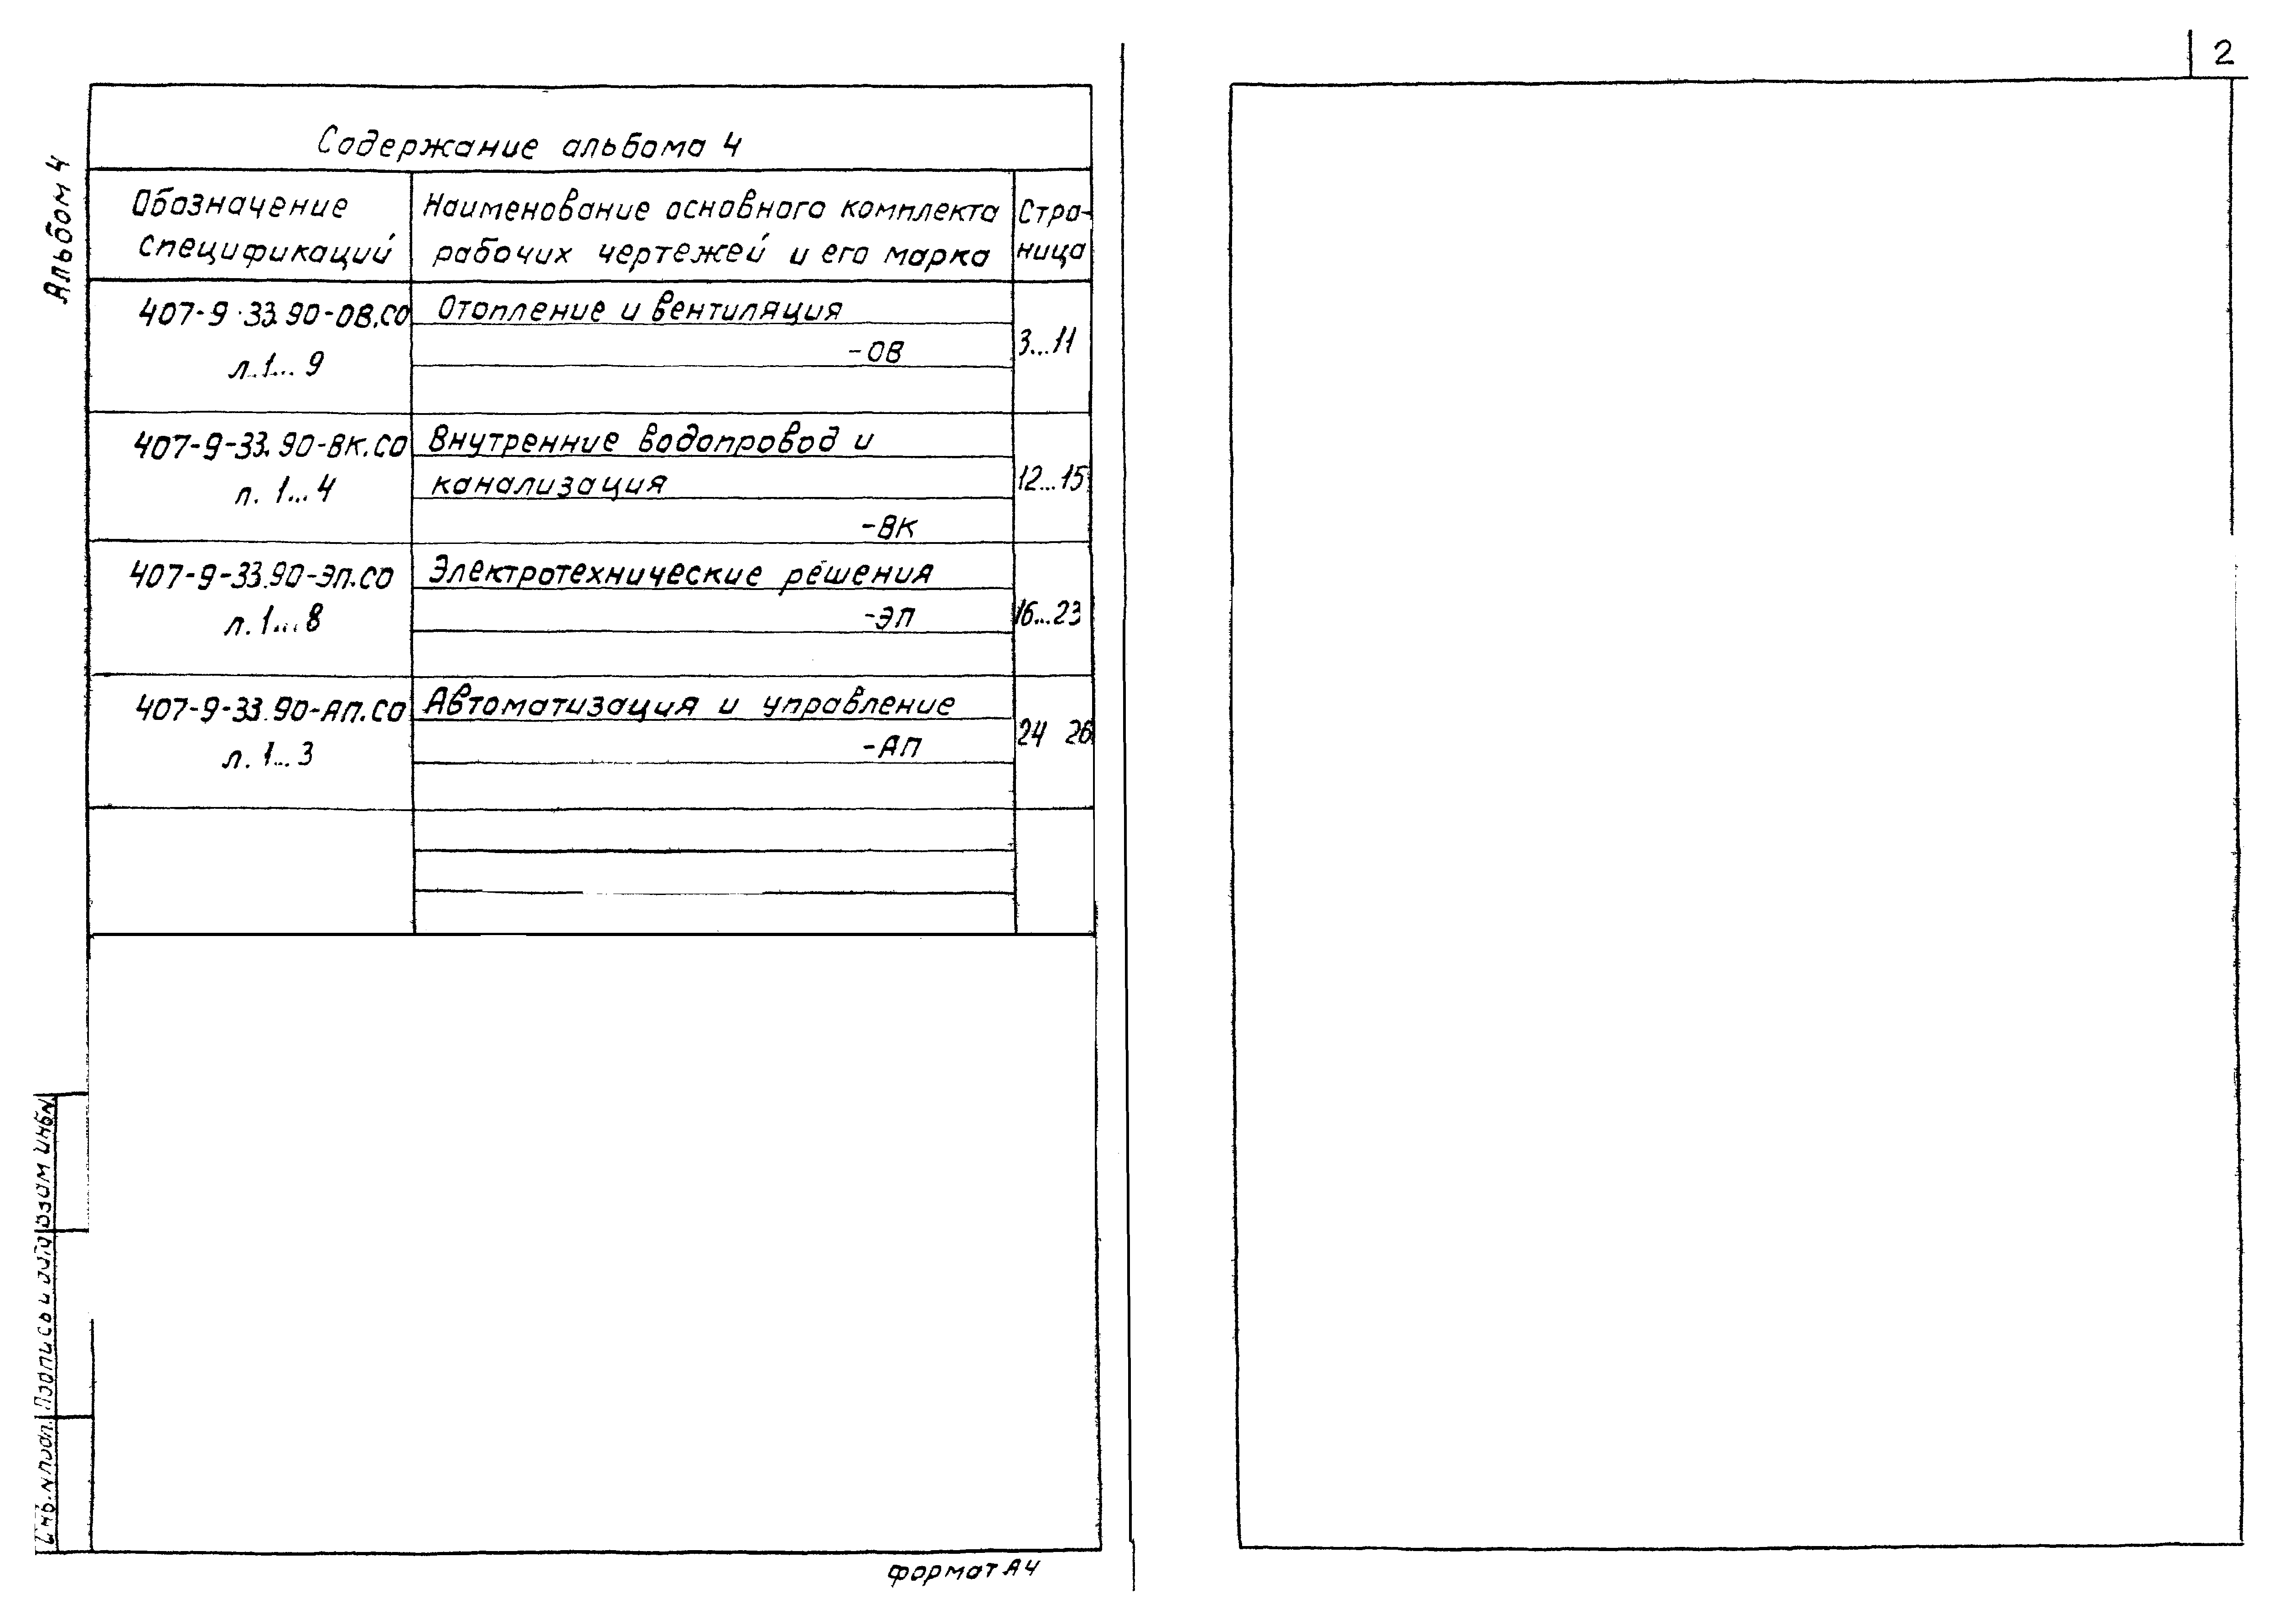 2
Альбом 4
Содержание альбома 4
Обозначение спецификаций
Наименование основного комплекта
рабочих чертежей и его марка
Стра-
ница
407-9-33.90-ОВ.СО
л.1...9
Отопление и вентиляция
-ОВ
3...11
407-9-33.90-ВК.СО
л. 1...4
Внутренние водопровод и
канализация
-ВК
12...15
407-9-33.90-ЭП.СО
л.1...8
Электротехнические решения
-ЭП
16...23
407-9-33.90-АП.СО
л. 1...3
Автоматизация и управление
-АП
24 26
Взам инв№
Подпись и дата
Инв.№подл.
формат А4